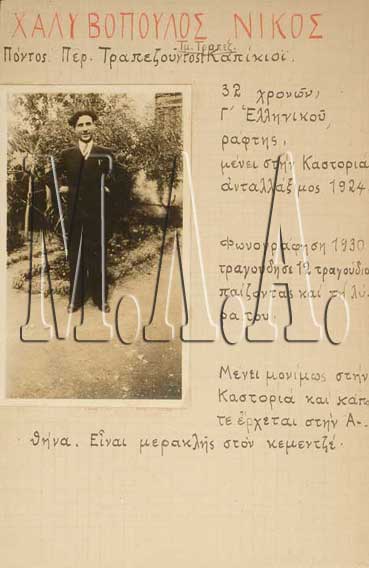 ΧΑΛΥΒΟΠΟΥΛΟΣ ΝΙΚΟΣ
Τμ. Τραπεζ.
Πόντος. Περ. Τραπεζούντος Καπίκιοϊ.
32 χρονῶν,
Γ΄ Ἑλληνικοῦ,
ραφτης,
μένει στὴν Καστοριά
ἀνταλλάξιμος 1924.
Φωνογράφηση 1930.
τραγούδησε 12 τραγούδια
παίζοντας και τη λύ-
ρα του.
Μένει μονίμως στὴν
Καστοριά και κάπο
τε ἔρχεται στὴν Ἀ-
θήνα. Εἶναι μερακλής στὸν κεμεντζέ.
Μ.Λ.Α.